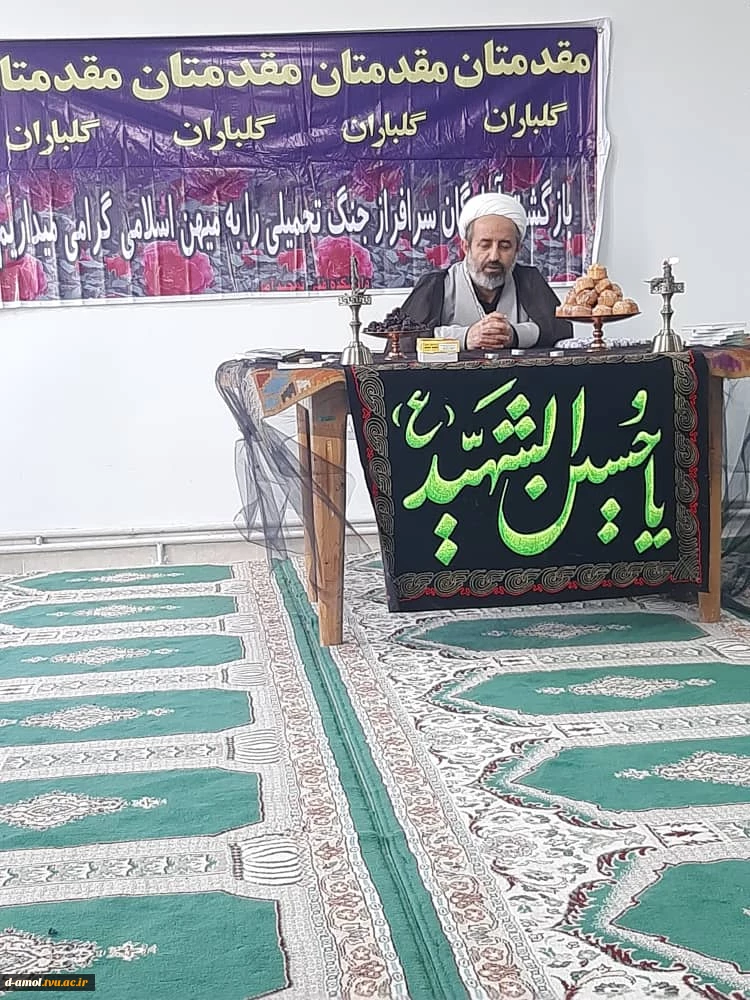 مقدمتان مقدمتان مقدمتان مقدمتان
گلباران گلباران گلباران گلباران
بازگشت آزادگان سرافراز جنگ تحمیلی را به میهن اسلامی گرامی میداریم
یا حسین الشهید (ع)
d-amol.tvu.ac.ir